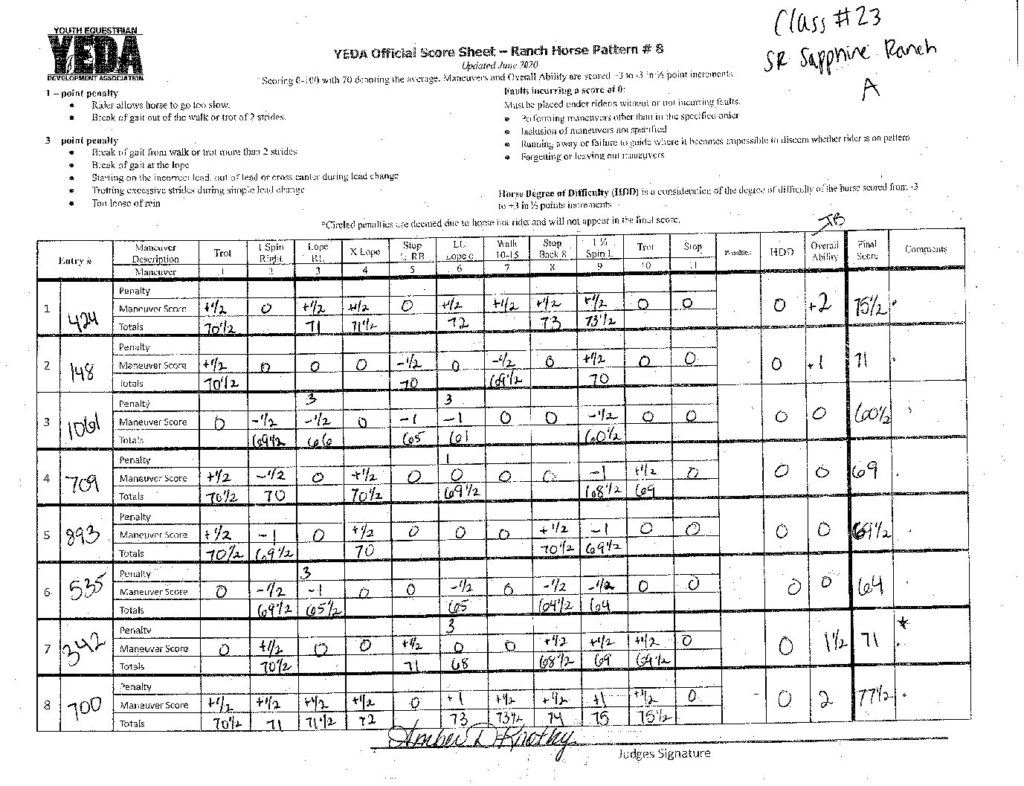 YOUTH EQUESTRIAN
YEDA
DEVELOPMENT ASSOCIATION
Class #23
SR Sapphire Ranch
A
YEDA Official Score Sheet – Ranch Horse Pattern # 8
Updated June 2020
Scoring 0-100 with 70 denoting the average. Maneuvers and Overall Ability are scored -3 to +3 in ½ point increments
1 – point penalty
• Rider allows horse to go too slow.
• Break of gait out of the walk or trot of 2 strides.
3 point penalty
• Break of gait from walk or trot more than 2 strides
• Break of gait at the lope
• Starting on the incorrect lead, out of lead or cross canter during lead change
• Trotting excessive strides during simple lead change
• Too loose of rein
Faults incurring a score of 0:
Must be placed under riders without or not incurring faults.
• Performing maneuvers other than in the specified order
• Inclusion of maneuvers not specified
• Running away or failure to guide where it becomes impossible to discern whether rider is on pattern
• Forgetting or leaving out maneuvers
Horse Degree of Difficulty (HDD) is a consideration of the degree of difficulty of the horse scored from -3
to +3 in ½ points increments
*Circled penalties are deemed due to horse not rider and will not appear in the final score.
JB
Entry # Maneuver Description Trot 1 Spin Right Lope RL X Lope Stop RB LL Lope Walk 10-15 Stop Back 8 1 ¼ Spin L Trot Stop Penalties HDD Overall Ability Final Score Comments
Maneuver 1 2 3 4 5 6 7 8 9 10 11
1 424 Penalty
Maneuver Score +1/2 0 +1/2 +1/2 0 +1/2 +1/2 +1/2 +1/2 0 0 0 +2 75 1/2
Totals 70 1/2 71 71 1/2 72 73 73 1/2
2 148 Penalty
Maneuver Score +1/2 0 0 0 -1/2 0 -1/2 0 +1/2 0 0 0 +1 71
Totals 70 1/2 70 69 1/2 70
3 1061 Penalty 3 3
Maneuver Score 0 -1/2 -1/2 0 -1 -1 0 0 -1/2 0 0 0 0 60 1/2
Totals 69 1/2 66 65 61 60 1/2
4 709 Penalty 1
Maneuver Score +1/2 -1/2 0 +1/2 0 0 0 0 -1 +1/2 0 0 0 69
Totals 70 1/2 70 70 1/2 69 1/2 68 1/2 69
5 893 Penalty
Maneuver Score +1/2 -1 0 +1/2 0 0 0 +1/2 -1 0 0 0 0 69 1/2
Totals 70 1/2 69 1/2 70 70 1/2 69 1/2
6 535 Penalty 3
Maneuver Score 0 -1/2 -1 0 0 -1/2 0 -1/2 -1/2 0 0 0 0 64
Totals 69 1/2 65 1/2 65 64 1/2 64
7 342 Penalty 3 *
Maneuver Score 0 +1/2 0 0 +1/2 0 0 +1/2 +1/2 +1/2 0 0 1 1/2 71
Totals 70 1/2 71 68 68 1/2 69 69 1/2
8 700 Penalty
Maneuver Score +1/2 +1/2 +1/2 +1/2 0 +1 +1/2 +1/2 +1 +1/2 0 0 2 77 1/2
Totals 70 1/2 71 71 1/2 72 73 73 1/2 74 75 75 1/2
Amber D
Judges Signature